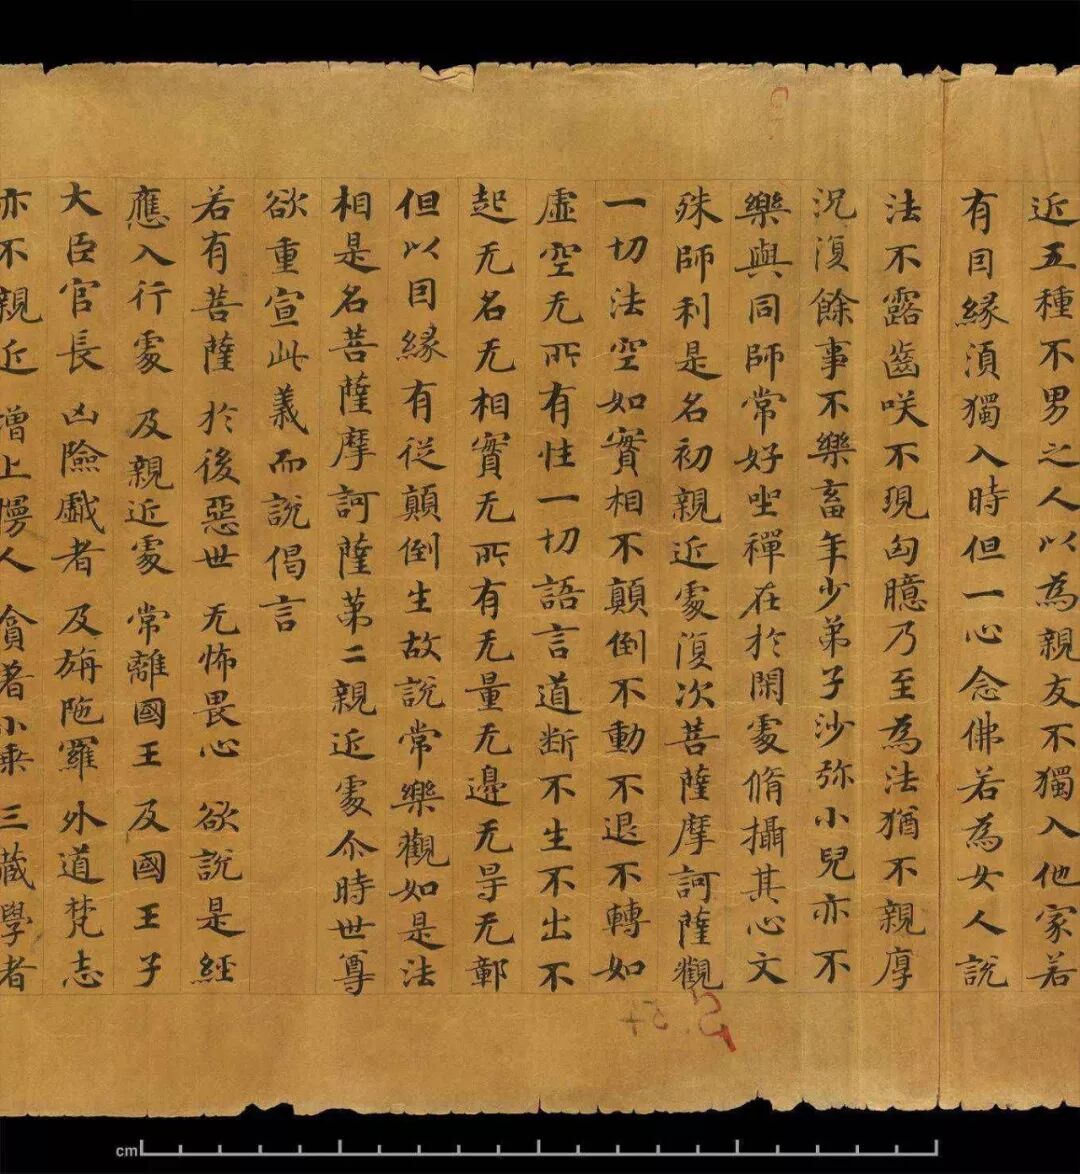 近五種不男之人以為親友不獨入他家若
有因緣須獨入時但一心念佛若為女人說
法不露齒咲不現匈臆乃至為法猶不親厚
況復餘事不樂畜年少弟子沙弥小兒亦不
樂與同師常好坐禪在於閑處脩攝其心文
殊師利是名初親近處復次菩薩摩訶薩觀
一切法空如實相不顛倒不動不退不轉如
虛空无所有性一切語言道断不生不出不
起无名无相實无所有无量无邊无㝵无鄣
但以因緣有從顛倒生故說常樂觀如是法
相是名菩薩摩訶薩第二親近處尒時世尊
欲重宣此義而說偈言
若有菩薩 於後惡世 无怖畏心 欲說是經
應入行處 及親近處 常離國王 及國王子
大臣官長 凶險戲者 及旃陁羅 外道梵志
亦不親近 增上慢人 貪著小乘 三藏學者
S.54
cm